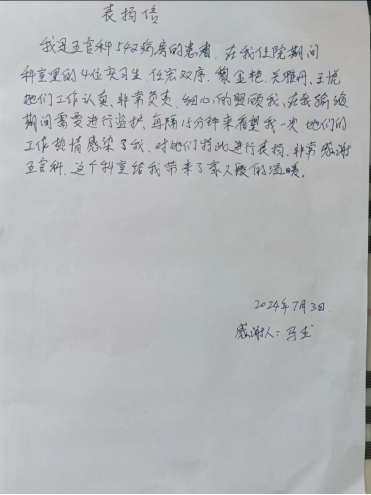 表扬信
我是五官科54双病房的患者,在我住院期间
科室里的4位实习生 任宏双序、蔡金艳、关雅丹、王悦
她们工作认真,非常负责,细心的照顾我,在我输液
期间需要进行监护,每隔15分钟来看望我一次,她们的
工作热情感染了我,对她们特此进行表扬,非常感谢
五官科,这个科室给我带来了家人般的温暖。
2024年7月3日.
感谢人:马